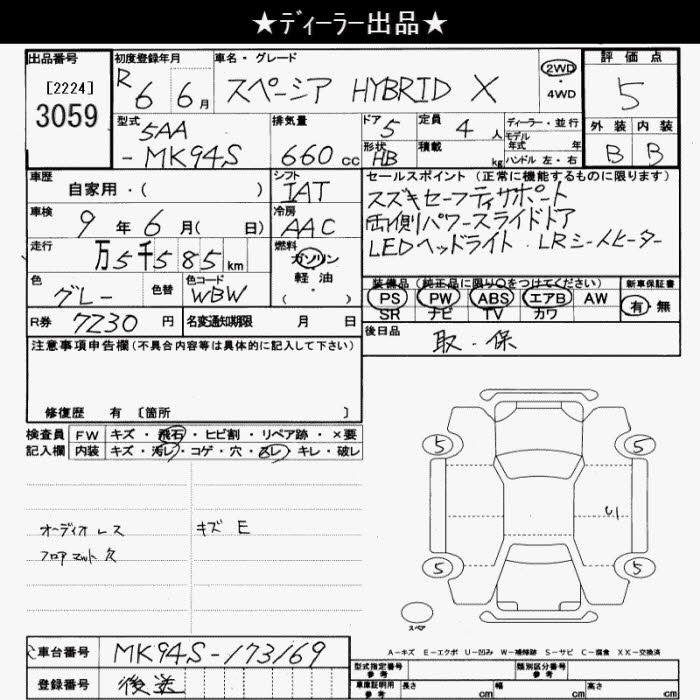 ★ディーラー出品★
出品番号
[2224]
3059
初度登録年月
R 6 6月
車名・グレード
スペーシア HYBRID X
2WD
・
4WD
評価点
5
型式
5AA
-MK94S
排気量
660 cc
ドア 5
形状 HB
定員 4 人
積載 kg
ディーラー・並行
モデル
年式 年
ハンドル 左・右
外装 内装
B B
車歴
自家用・( )
シフト
IAT
車検
9 年 6 月( 日)
冷房
AAC
走行
万5千585km
燃料
ガソリン
軽油
・( )
色
グレー
色替
色コード
WBW
R券
7230 円
名変通知期限 月 日
セールスポイント (正常に機能するものに限ります)
スズキセーフティサポート
両側パワースライドドア
LEDヘッドライト・LRシートヒーター
装備品(純正品に限り○をつけてください)
新車保証書
PS PW ABS エアB AW
SR ナビ TV カワ
有・無
後日品
取・保
注意事項申告欄(不具合内容等は具体的に記入して下さい)
修復歴 有 〔箇所 〕
検査員
記入欄
FW キズ・飛石・ヒビ割・リペア跡・×要
内装 キズ・汚レ・コゲ・穴・スレ・キレ・破レ
オーディオレス
フロアマット欠
キズ E
5 5
U1
5 5
スペア
A-キズ E-エクボ U-凹み W-補修跡 S-サビ C-腐食 XX-交換済
車台番号
MK94S-173169
登録番号
後送
型式指定番号
参考
類別区分番号
参考
車庫証明用
参考
長さ cm
幅 cm
高さ cm